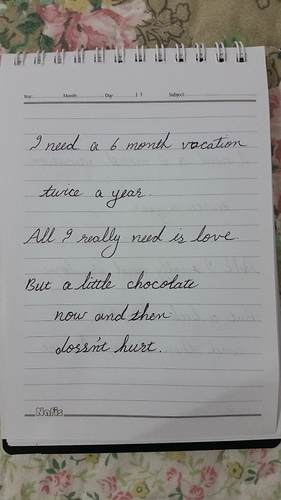 Year: Month: Day ( ) Subject:
I need a 6 month vacation
twice a year.
All I really need is love.
But a little chocolate
now and then
dossn't hurt.
Nafis